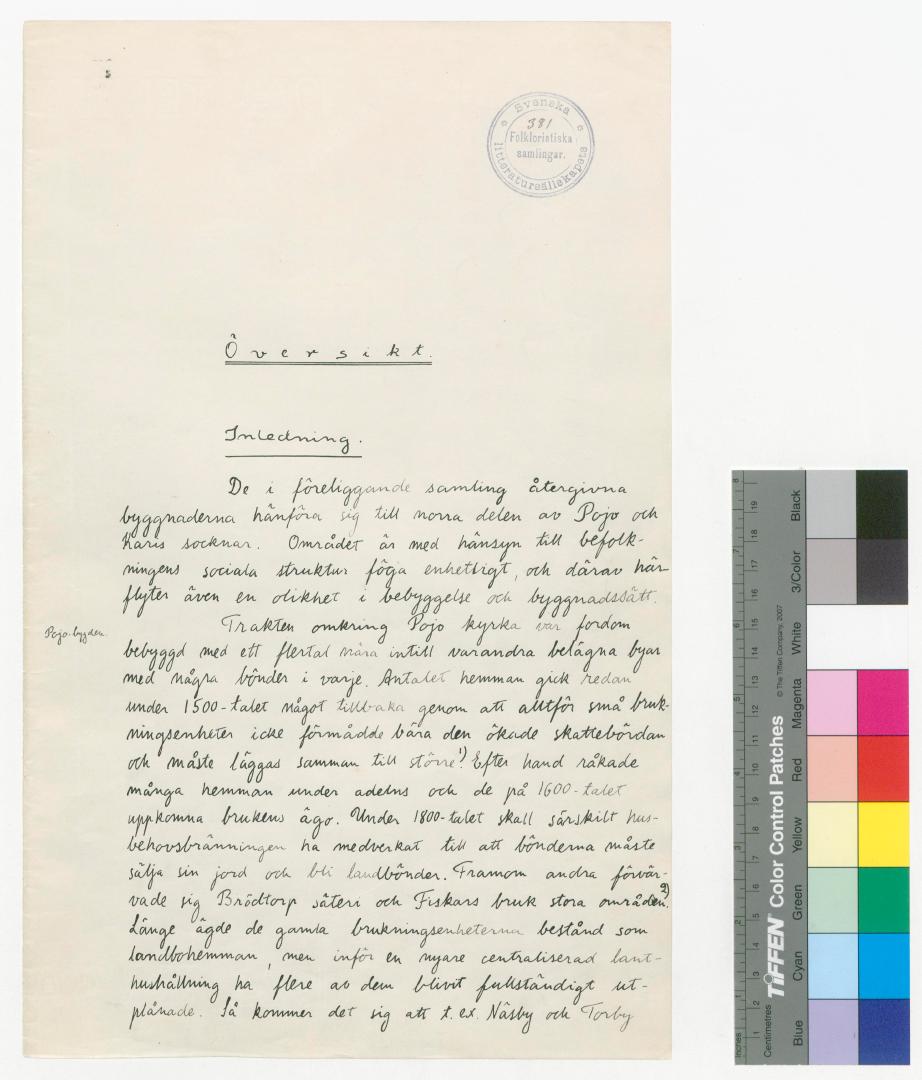 Svenska
litteratursällskapets
381
Folkloristiska
samlingar.
Översikt.
Inledning.
De i föreliggande samling återgivna
byggnaderna hänföra sig till norra delen av Pojo och
Karis socknar. Området är med hänsyn till befolk-
ningens sociala struktur föga enhetligt, och därav här-
flyter även en olikhet i bebyggelse och byggnadssätt.
Pojo-bygden.
Trakten omkring Pojo kyrka var fordom
bebyggd med ett flertal nära intill varandra belägna byar
med några bönder i varje. Antalet hemman gick redan
under 1500-talet något tillbaka genom att alltför små bruk-
ningsenheter icke förmådde bära den ökade skattebördan
och måste läggas samman till större.1) Efter hand råkade
många hemman under adelns och de på 1600-talet
uppkomna brukens ägo. Under 1800-talet skall särskilt hus-
behovsbränningen ha medverkat till att bönderna måste
sälja sin jord och bli landbönder. Framom andra förvär-
vade sig Brödtorp säteri och Fiskars bruk stora områden.2)
Länge ägde de gamla brukningsenheterna bestånd som
landbohemman, men inför en nyare centraliserad lant-
hushållning ha flere av dem blivit fullständigt ut-
plånade. Så kommer det sig att t.ex. Näsby och Torby
Inches
Centimetres
TIFFEN Color Control Patches
© The Tiffen Company, 2007
Blue
Cyan
Green
Yellow
Red
Magenta
White
3/Color
Black